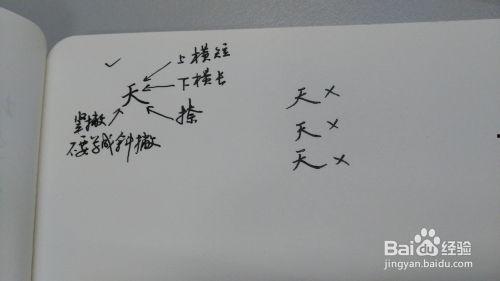 ✓
上横短
下横长
天
捺
竖撇
不要写成斜撇
天×
天×
天×
Baidu经验
jingyan.baidu.com